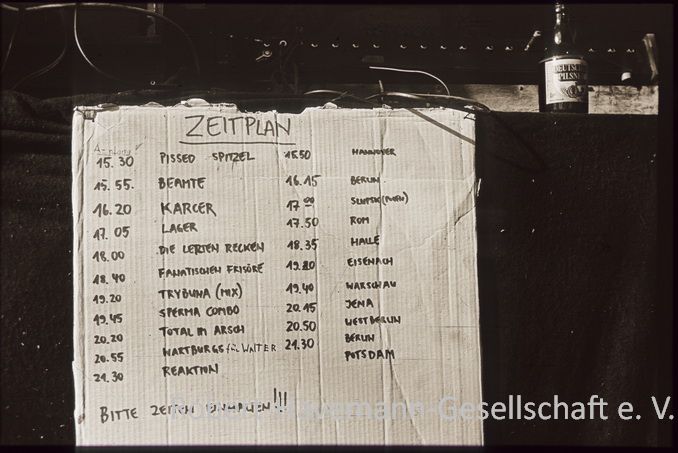 ZEITPLAN
15.30 PISSED SPITZEL 15.50 HANNOVER
15.55. BEAMTE 16.15 BERLIN
16.20 KARCER 17.00 SLUPSK (POLEN)
17.05 LAGER 17.50 ROM
18.00 DIE LETZTEN RECKEN 18.35 HALLE
18.40 FANATISCHEN FRISÖRE 19.20 EISENACH
19.20 TRYBUNA (MIX) 19.40 WARSCHAU
19.45 SPERMA COMBO 20.15 JENA
20.20 TOTAL IM ARSCH 20.50 WESTBERLIN
20.55 WARTBURGS für WALTER 21.30 BERLIN
21.30 REAKTION POTSDAM
BITTE ZEITEN EINHALTEN!!!
DEUTSCHES
PILSNER
Robert-Havemann-Gesellschaft e. V.